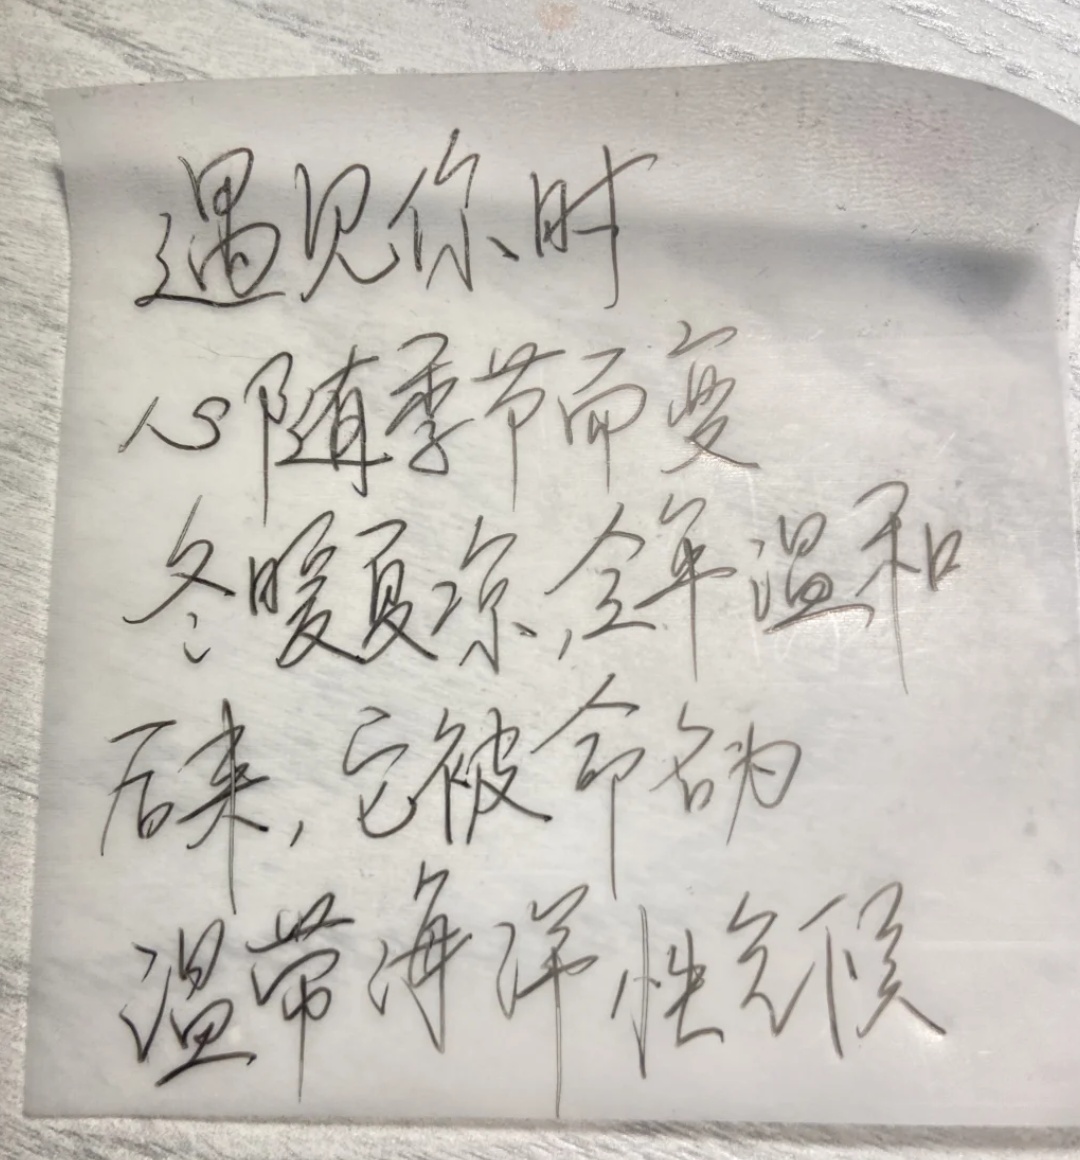 遇见你时
心随季节而变
冬暖夏凉,全年温和
后来,它被命名为
温带海洋性气候